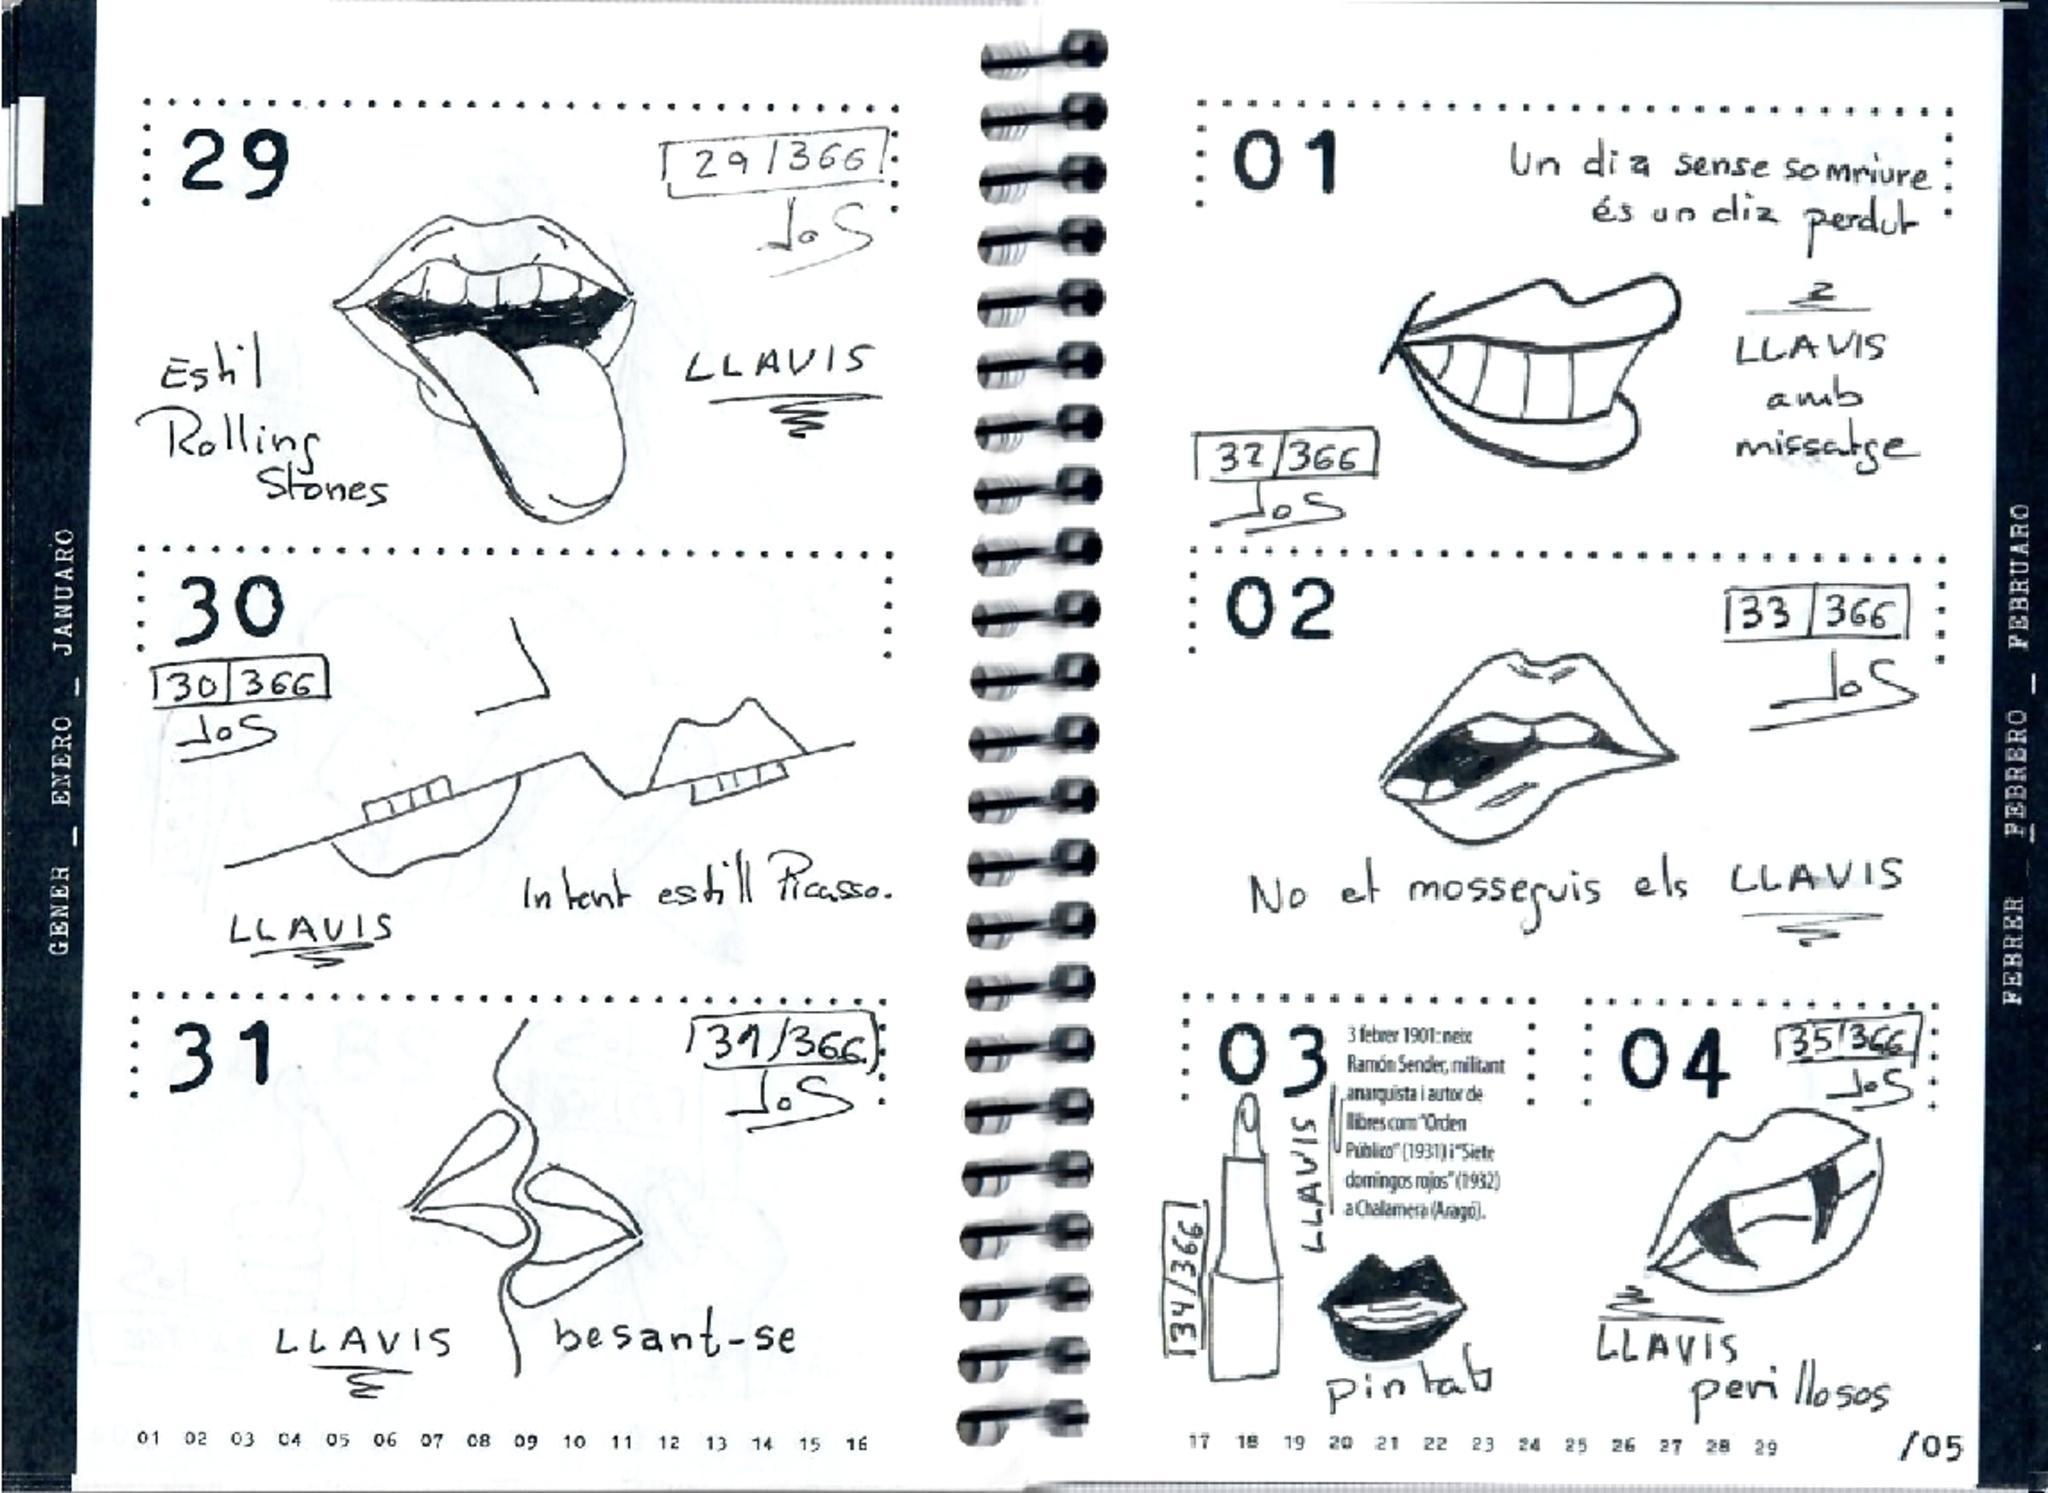 GENER _ ENERO _ JANUARO
29
29/366
JoS
Estil
Rolling
Stones
LLAVIS
30
30/366
JoS
LLAVIS
Intent estill Picasso.
31
31/366
JoS
LLAVIS besant-se
01 02 03 04 05 06 07 08 09 10 11 12 13 14 15 16
01
Un dia sense somriure
és un dia perdut
LLAVIS
amb
missatge
32/366
JoS
02
33/366
JoS
No et mosseguis els LLAVIS
03
3 febrer 1901: neix
Ramón Sender, militant
anarquista i autor de
llibres com "Orden
Público" (1931) i "Siete
domingos rojos" (1932)
a Chalamera (Aragó).
LLAVIS
34/366
pintats
04
35/366
JoS
LLAVIS
perillosos
17 18 19 20 21 22 23 24 25 26 27 28 29
/05
FEBRER _ FEBRERO _ FEBRUARO